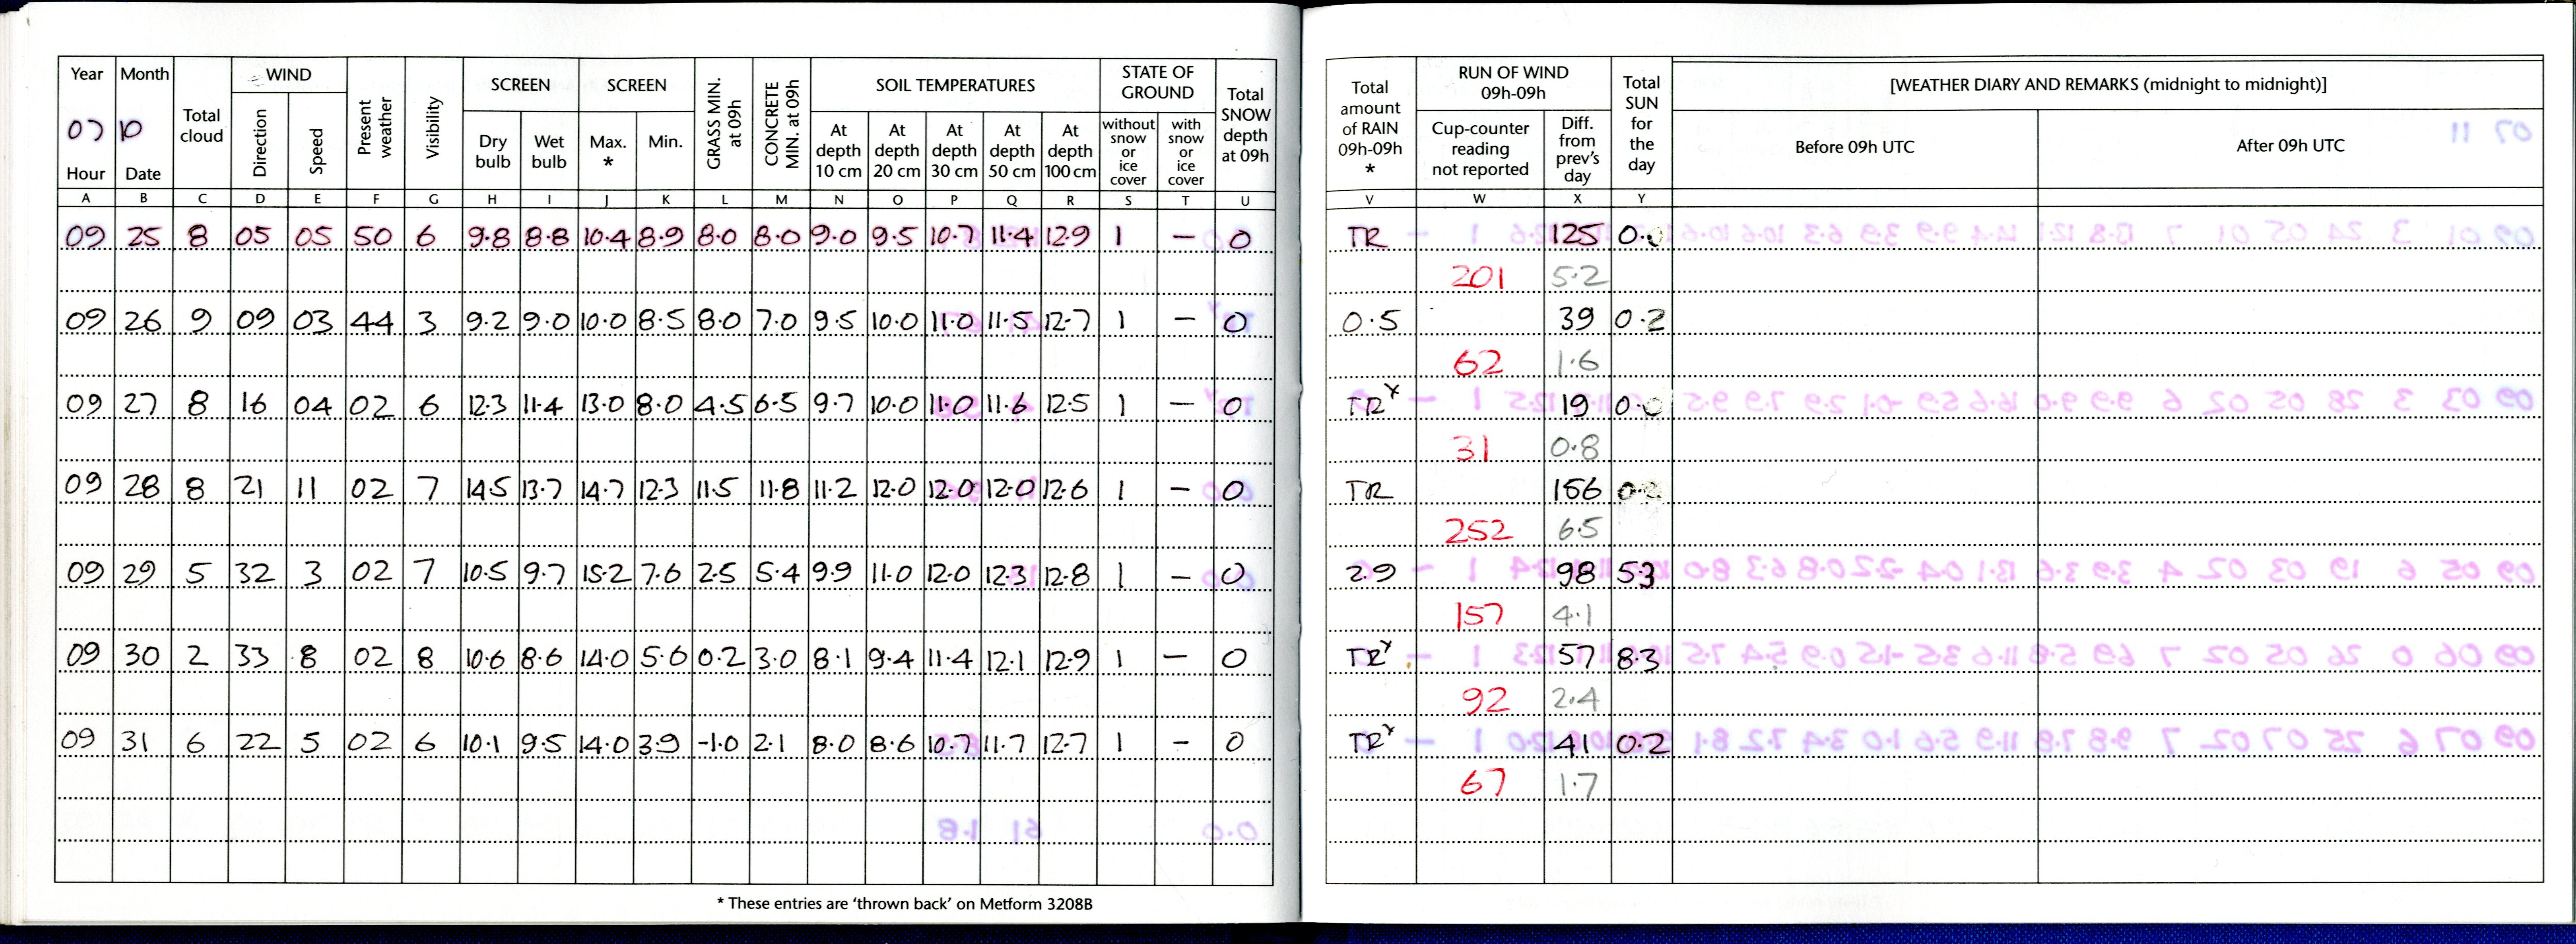 Year Month Total cloud WIND Present weather Visibility SCREEN SCREEN GRASS MIN. at 09h CONCRETE MIN. at 09h SOIL TEMPERATURES STATE OF GROUND Total SNOW depth at 09h
07 10 Direction Speed Dry bulb Wet bulb Max. * Min. At depth 10 cm At depth 20 cm At depth 30 cm At depth 50 cm At depth 100 cm without snow or ice cover with snow or ice cover
Hour Date
A B C D E F G H I J K L M N O P Q R S T U
09 25 8 05 05 50 6 9.8 8.8 10.4 8.9 8.0 8.0 9.0 9.5 10.7 11.4 12.9 1 – 0
09 26 9 09 03 44 3 9.2 9.0 10.0 8.5 8.0 7.0 9.5 10.0 11.0 11.5 12.7 1 – 0
09 27 8 16 04 02 6 12.3 11.4 13.0 8.0 4.5 6.5 9.7 10.0 11.0 11.6 12.5 1 – 0
09 28 8 21 11 02 7 14.5 13.7 14.7 12.3 11.5 11.8 11.2 12.0 12.0 12.0 12.6 1 – 0
09 29 5 32 3 02 7 10.5 9.7 15.2 7.6 2.5 5.4 9.9 11.0 12.0 12.3 12.8 1 – 0
09 30 2 33 8 02 8 10.6 8.6 14.0 5.6 0.2 3.0 8.1 9.4 11.4 12.1 12.9 1 – 0
09 31 6 22 5 02 6 10.1 9.5 14.0 3.9 -1.0 2.1 8.0 8.6 10.7 11.7 12.7 1 – 0
* These entries are 'thrown back' on Metform 3208B
Total amount of RAIN 09h-09h * RUN OF WIND 09h-09h Total SUN for the day [WEATHER DIARY AND REMARKS (midnight to midnight)]
Cup-counter reading not reported Diff. from prev's day Before 09h UTC After 09h UTC
V W X Y
TR 125 0.0
201 5.2
0.5 39 0.2
62 1.6
TRY 19 0.0
31 0.8
TR 156 0.0
252 6.5
2.9 98 5.3
157 4.1
TRY 57 8.3
92 2.4
TRY 41 0.2
67 1.7